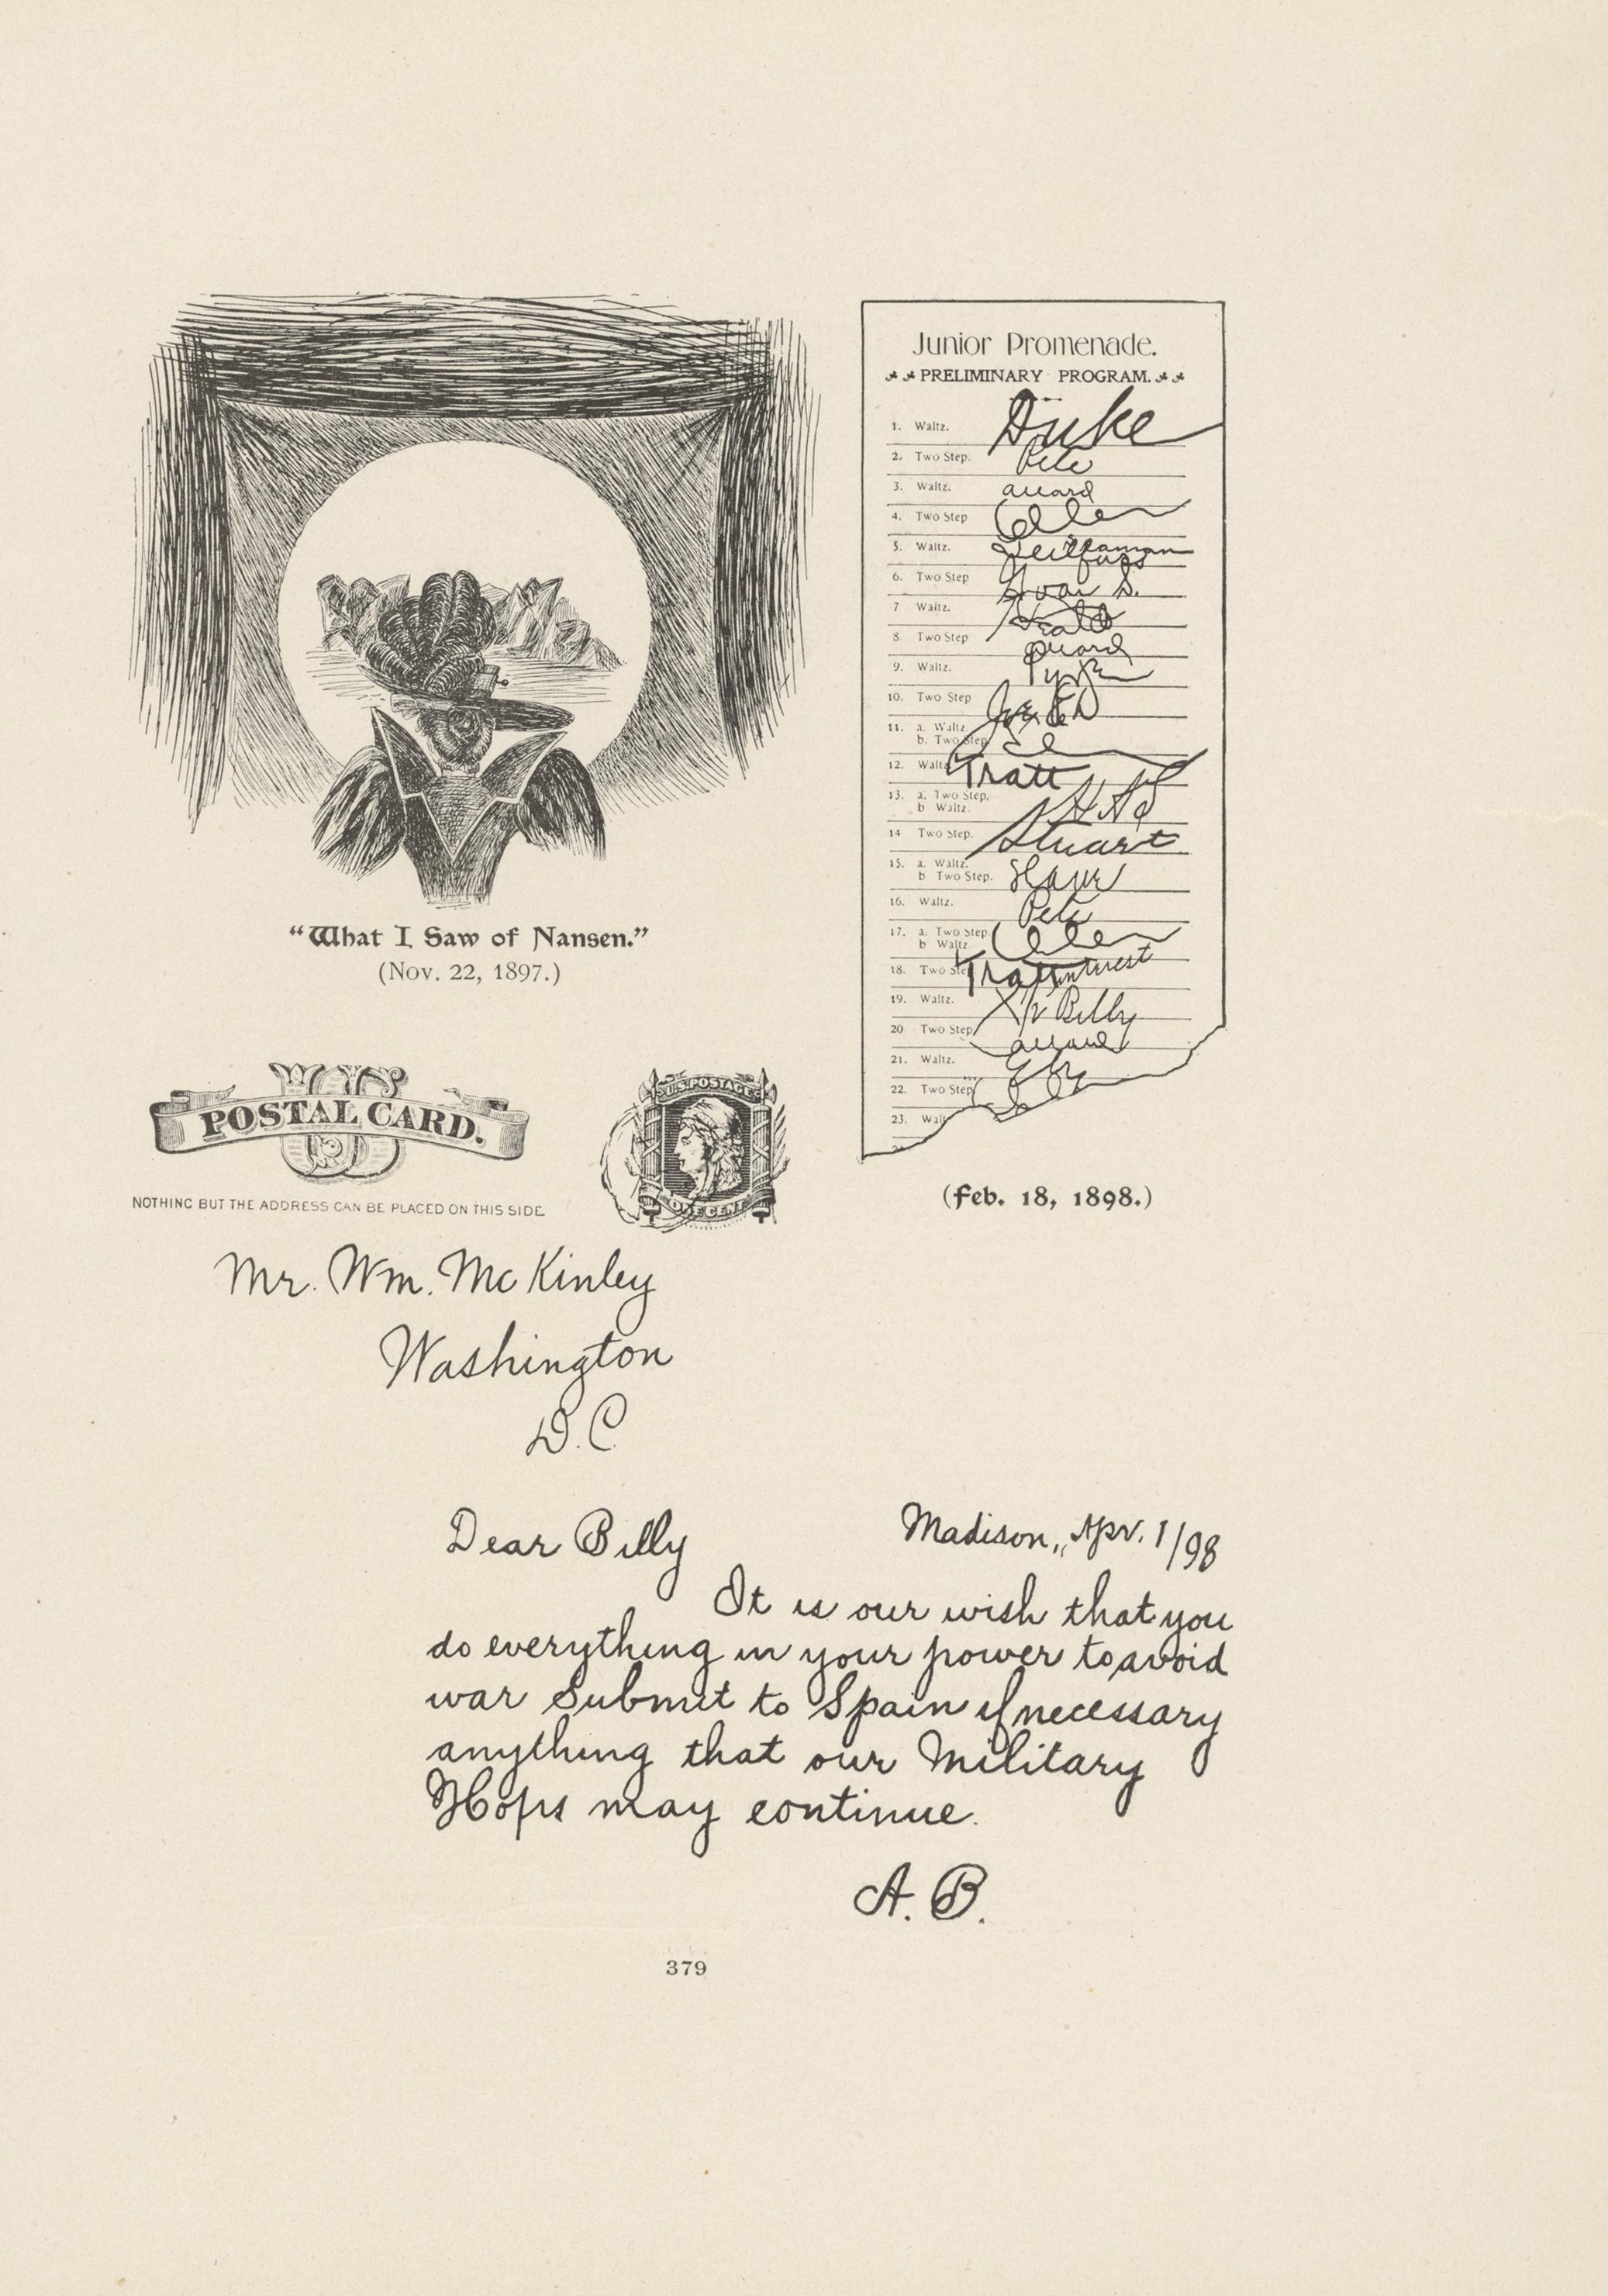 "What I Saw of Nansen."
(Nov. 22, 1897.)
Junior Promenade.
PRELIMINARY PROGRAM.
1. Waltz. Duke
2. Two Step. Pete
3. Waltz.
4. Two Step
5. Waltz.
6. Two Step
7 Waltz.
8. Two Step
9. Waltz.
10. Two Step
11. a. Waltz
b. Two Step
12. Waltz Tratt
13. a. Two Step.
b Waltz.
14 Two Step. Stuart
15. a. Waltz.
b Two Step.
16. Waltz. Pete
17. a. Two Step
b Waltz
18. Two Ste Tratt
19. Waltz. Billy
20. Two Step
21. Waltz.
22. Two Step
23. Wal
(Feb. 18, 1898.)
POSTAL CARD.
NOTHING BUT THE ADDRESS CAN BE PLACED ON THIS SIDE.
U.S. POSTAGE
ONE CENT
Mr. Wm. McKinley
Washington
D.C.
Madison,, Apr. 1/98
Dear Billy
It is our wish that you
do everything in your power to avoid
war Submit to Spain if necessary
anything that our Military
Hops may continue.
A. B.
379